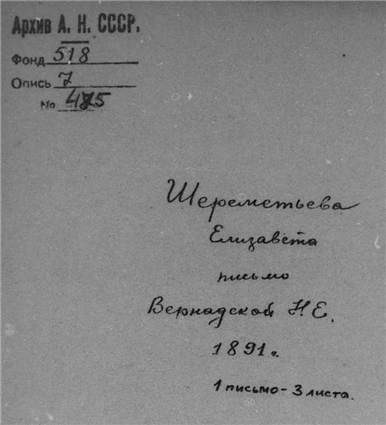 Архив А. Н. СССР.
Фонд 518
Опись 7
№ 475
Шереметьева
Елизавета
письмо
Вернадской Н.Е.
1891 г.
1 письмо - 3 листа.